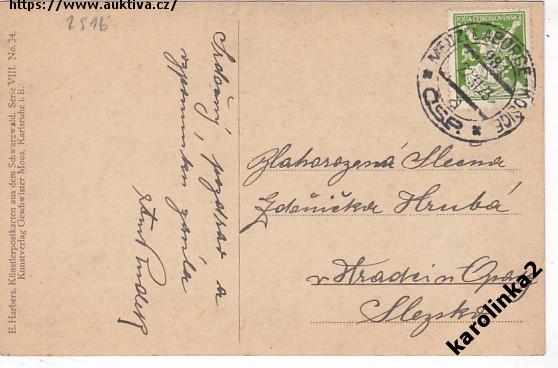 https://www.auktiva.cz/
2516
E. Harbers, Künstlerpostkarten aus dem Schwarzwald, Serie VIII. No. 34.
Kunstverlag Geschwister Moos, Karlsruhe i. B.
Srdečný pozdrav a
vzpomínku zasílá
POŠTA ČESKOSLOVENSKÁ
MEDZILABORCE KOŠICE
ČSP.
Blahorozená Slečna
Zdenička Hrubá
v Hradci u Opavy
Slezsko
karolinka2